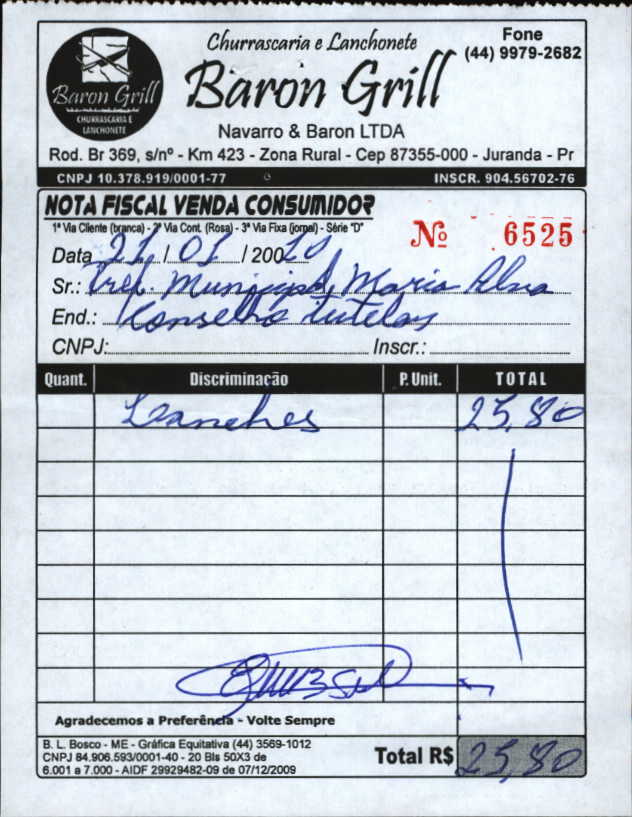 Churrascaria e Lanchonete
Baron Grill
Navarro & Baron LTDA
Fone
(44) 9979-2682
Baron Grill
CHURRASCARIA E
LANCHONETE
Rod. Br 369, s/nº - Km 423 - Zona Rural - Cep 87355-000 - Juranda - Pr
CNPJ 10.378.919/0001-77 INSCR. 904.56702-76
NOTA FISCAL VENDA CONSUMIDOR
1ª Via Cliente (branca) - 2ª Via Cont. (Rosa) - 3ª Via Fixa (jornal) - Série "D"
Nº 6525
Data 21 / 01 / 200 10
Sr.: Pref. Municipal Maria
End.: Conselho tutelar
CNPJ: Inscr.:
Quant. Discriminação P. Unit. TOTAL
Lanches 25,80
Agradecemos a Preferência - Volte Sempre
B. L. Bosco - ME - Gráfica Equitativa (44) 3569-1012
CNPJ 84.906.593/0001-40 - 20 Bls 50X3 de
6.001 a 7.000 - AIDF 29929482-09 de 07/12/2009
Total R$ 25,80